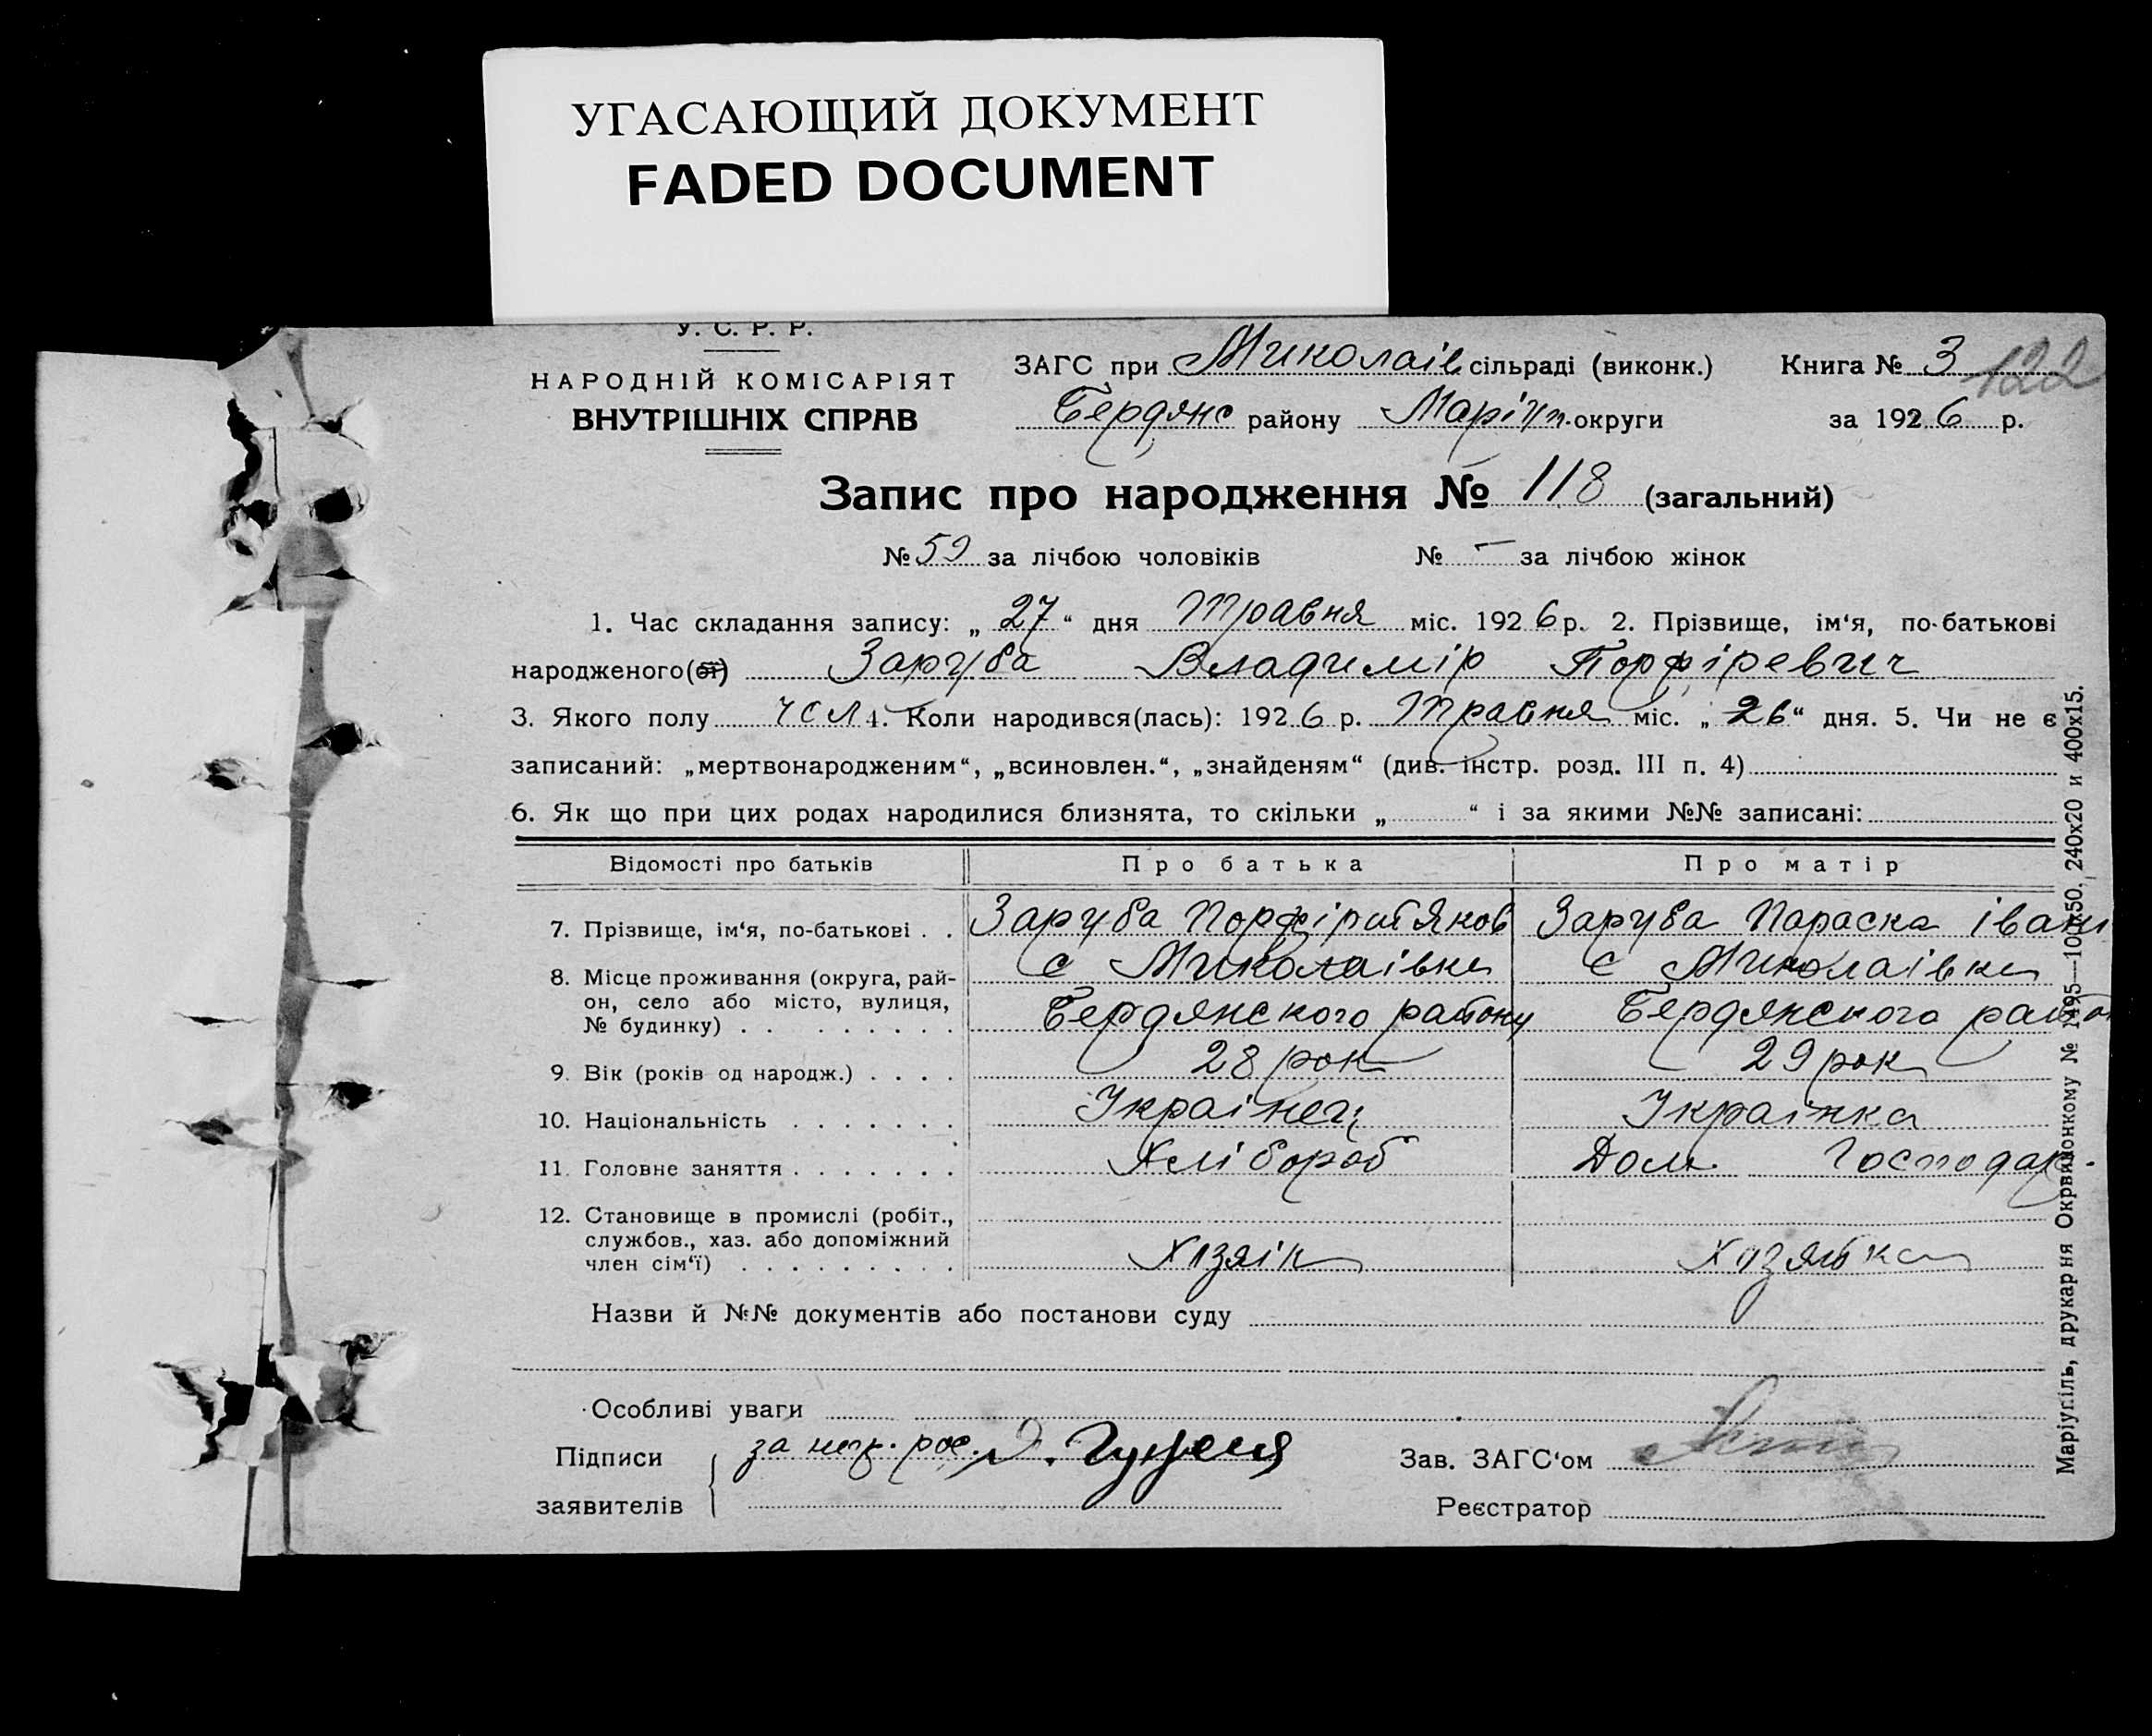 УГАСАЮЩИЙ ДОКУМЕНТ
FADED DOCUMENT
У. С. Р. Р.
НАРОДНІЙ КОМІСАРІЯТ
ВНУТРІШНІХ СПРАВ
ЗАГС при Миколаїв сільраді (виконк.) Книга № 3 122
Бердянс району Маріуп. округи за 1926 р.
Запис про народження № 118 (загальний)
№ 59 за лічбою чоловіків № – за лічбою жінок
1. Час складання запису: „27“ дня Травня міс. 1926 р. 2. Прізвище, ім‘я, по-батькові
народженого(ої) Заруба Владимір Порфіревич
3. Якого полу чол 4. Коли народився(лась): 1926 р. Травня міс. „26“ дня. 5. Чи не є
записаний: „мертвонародженим“, „всиновлен.“, „знайденям“ (див. інстр. розд. III п. 4)
6. Як що при цих родах народилися близнята, то скільки „ “ і за якими №№ записані:
Відомості про батьків Про батька Про матір
7. Прізвище, ім‘я, по-батькові . . Заруба Порфірий Яков Заруба Параска Івани
8. Місце проживання (округа, рай- с Миколаівки с Миколаівки
он, село або місто, вулиця,
№ будинку) . . . . . . . . . Бердянского району Бердянского район
9. Вік (років од народж.) . . . . 28 рок 29 рок
10. Національність . . . . . . . Украінец Украінка
11. Головне заняття . . . . . . . Хлібороб Дом. Господар.
12. Становище в промислі (робіт.,
службов., хаз. або допоміжний
член сім‘ї) . . . . . . . . . Хазяін Хазяйка
Назви й №№ документів або постанови суду
Особливі уваги
Підписи за негр. рос.
заявителів
Зав. ЗАГС‘ом
Реєстратор
Маріупіль, друкарня Окрвиконкому № 1495—100х50. 240х20 и 400х15.